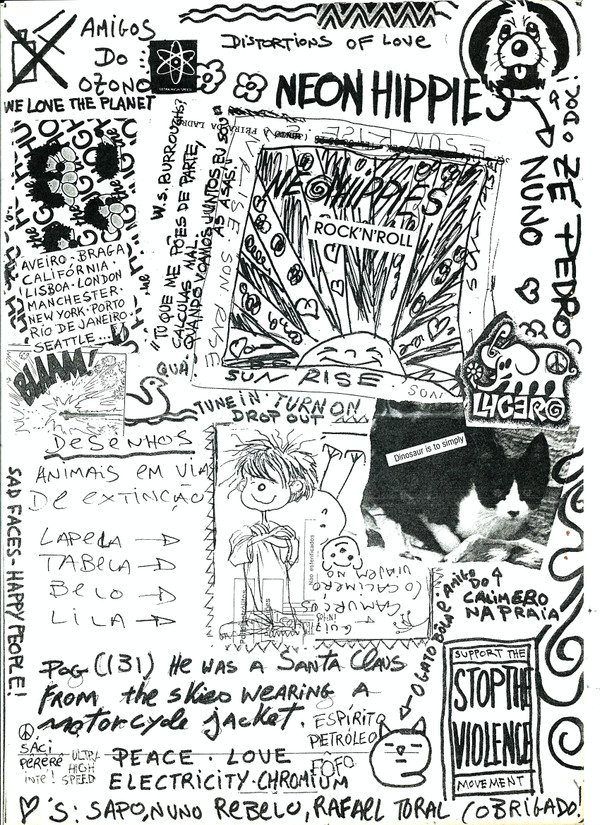 AMIGOS
DO
OZONO
WE LOVE THE PLANET
DISTORTIONS OF LOVE
NEON HIPPIES
ZÉ PEDRO
NUNO
W.S. BURROUGHS?
"TU QUE ME PÕES DE PARTE,
CALCULAS MAL
QUANDO VAMOS JUNTOS EU SOU
AS
NEON HIPPIES
ROCK'N'ROLL
SUN RISE
SUN
AVEIRO - BRAGA
CALIFÓRNIA -
LISBOA - LONDON
MANCHESTER -
NEW YORK - PORTO
RIO DE JANEIRO -
SEATTLE...
BLAM!
QUÁ
TUNE IN TURN ON
DROP OUT
LUCERO
Dinosaur is to simply
DESENHOS
ANIMAIS EM VIA
DE EXTINÇÃO
LAPELA
TABELA
BELO
LILA
SAD FACES - HAPPY PEOPLE!
VIAJEM NO
CAMURCUS
O GATO BOLA É AMIGO
DO
CALIMERO
NA PRAIA
POG (131) HE WAS A SANTA CLAUS
FROM the skies WEARING A
motorcycle jacket.
ESPÍRITO
PETRÓLEO
FÔFO
SACI
PERERÊ
ULTRA
HIGH
SPEED
PEACE · LOVE
ELECTRICITY · CHROMIUM
SUPPORT THE
STOP THE
VIOLENCE
MOVEMENT
♡'S: SAPO, NUNO REBELO, RAFAEL TORAL (OBRIGADO!